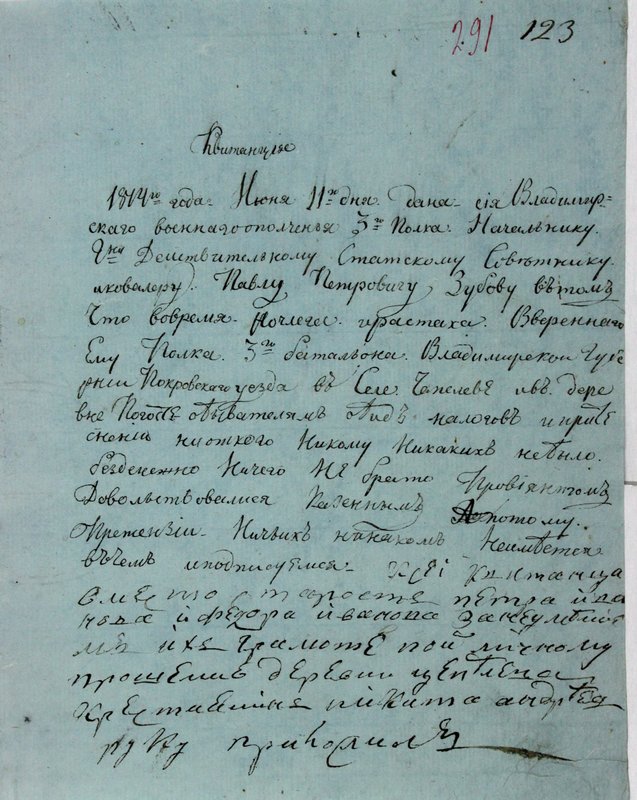 291 123
Квитанцiя
1814го года. Июня 11го дня дана сiя Владимир=
скаго военнаго ополченья 3го Полка. Начальнику.
Гну Действительному Статскому Совѣтнику.
икавалеру). Павлу Петровичу Зубову вътомъ
Что вовремя. Ночлега ирастаха. Ввереннаго
Ему Полка. 3го баталъона. Владимирской Губе
рнии Покровскаго уезда въ Селе. ивъ дере
вне обывателямъ обидъ налоговъ ипритѣ
снѣнiя ниоткого Никому Никакихъ небыло.
безденежно Ничего Не брато Провiянтомъ
Довольствовалися Казеннымъ Апотому.
Претензии. Ничьихъ нинакомъ Неимѣется
въчемъ иподписуемся. Ксей Квитанци
вместо старостъ петра ива
нова ифедора иванова занеумѣние
мъ ихъ грамоте поих личному
прошению деревни
крестьянинъ никита андрѣев
руку приложилъ